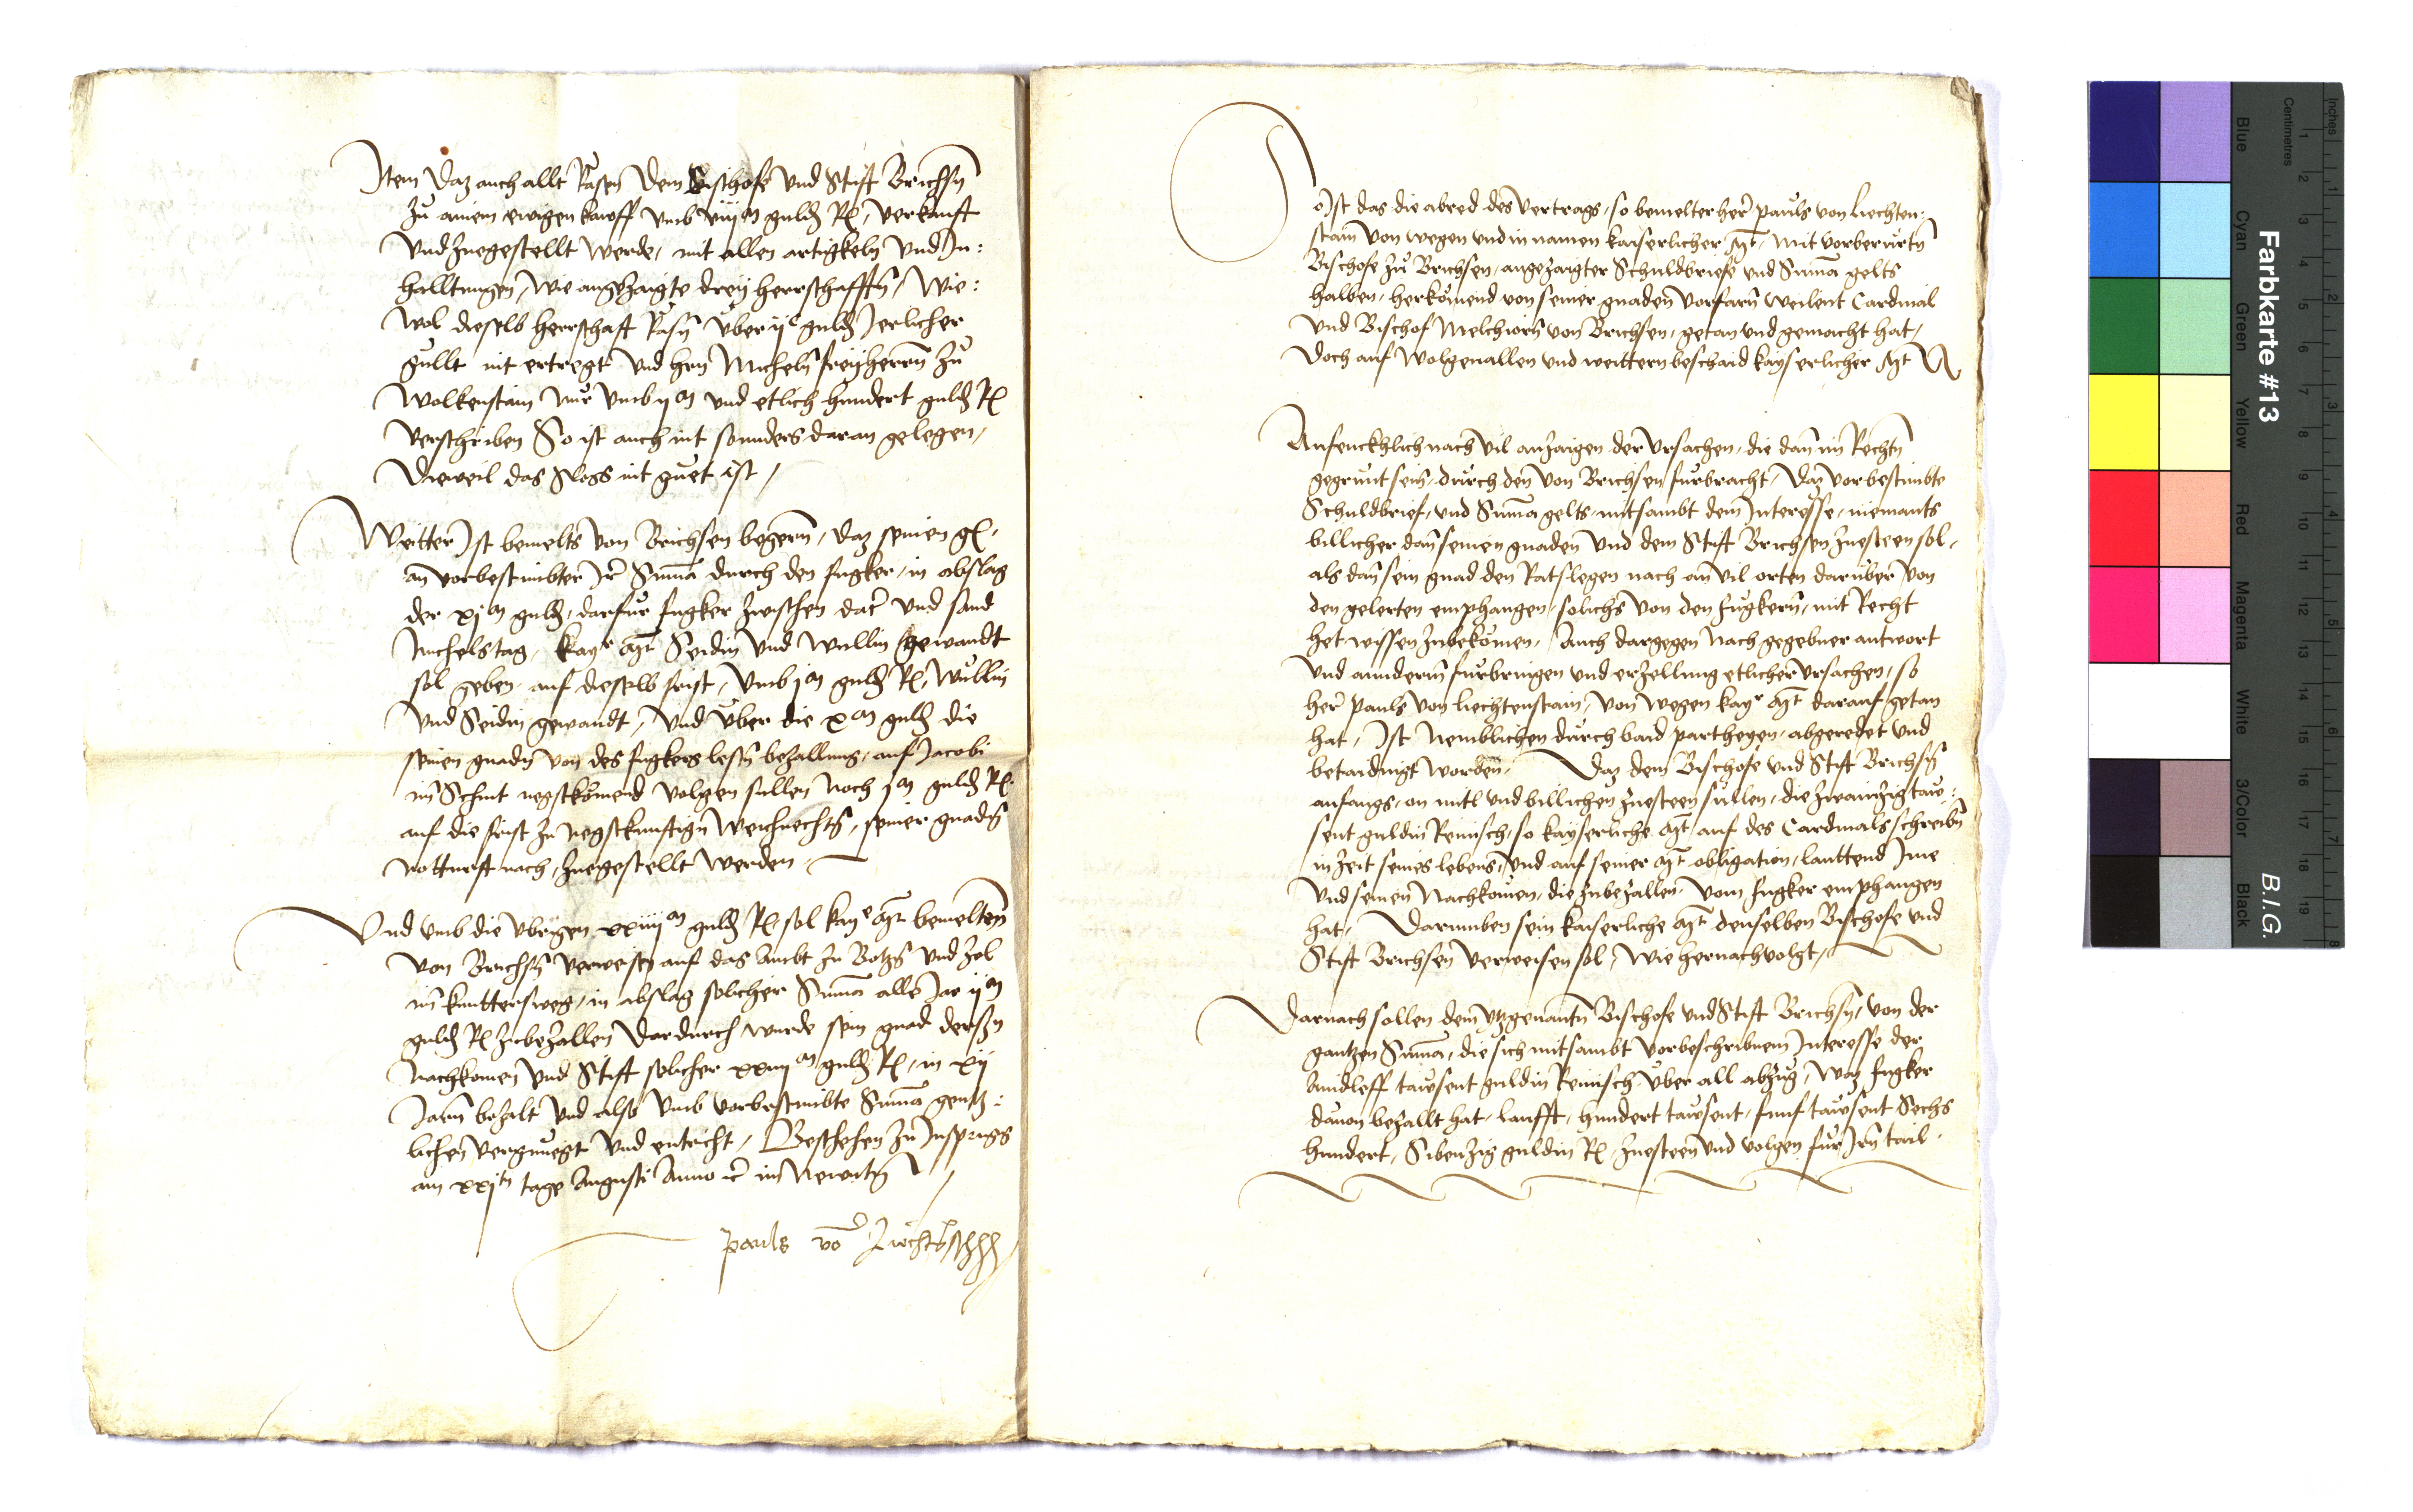 Item Daz auch allt Rasen Dem Bischofe vnd Stift Brichsn
zu ainem ewigen kauff vmb viij m guldn R, verkauft
vnd zuegestellt werde, mit allen artigkeln vnd In:
halltungen, wie angezaigte drey herrschafften, Wie:
wol dieselb herrschaft Rasn vber ij c guldn Jerlicher
gullt nit ertregt vnd hern Micheln freyherrn zu
Wolkenstain nur vmb ij m vnd etlich hundert guldn R
verschriben So ist auch nit sonnders daran gelegen,
Dieweil das Sloss nit guet ist,
Weitter Ist bemelts von Brichsen begern, daz seinen g,
an vorbestimbter Ir Suma durch den fugker, in abslag
der xj m guldn, darfur fugker zwischen dat vnd sand
Michelstag, kayr Mt Seidin vnd wullin gewandt
sol geben, auf dieselb frist, vmb j m guldn R, wullin
vnd Seidin gewandt, vnd vber die x m guldn die
seinen gnadn von des fugkers lestn bezallung, auf Jacobi
im Schnit negstkomend volgen sullen noch j m guldn R
auf die frist zu negstkunftign Weichnechtn, seiner gnadn
notturft nach, zuegestellt werden,
Vnd vmb die vbrigen xxiiij m guldn R, sol kaye Mt bemelten
von Brichsn verweisn auf das Ambt zu Botzn vnd zol
im kunttersweg, in abslag solicher Suma alle Jar ij m
guldn R zubezallen Dardurch wurde sein gnad dersn
Nachkomen vnd Stift solicher xxiiij m guldn R, in xij
Jarn bezalt vnd also vmb vorbestimbte Suma gentz:
lichen vergnuegt vnd entricht, Beschehen zu Insprugg
am xxj tn tage Augusti Anno etc im Newntn
pauls vo Liechtn
So Ist das die abred des vertrags, so bemelter her pauls von Liechten:
stain von wegen vnd in namen kaiserlicher Mt, mit vorberurtn
Bischofe zu Brichsen, angezaigter Schuldbriefe vnd Suma gelts
halben, herkomend von seiner gnaden vorfarn weilent Cardinal
vnd Bischof Melchiorn von Brichsen, getan vnd gemacht hat,
Doch auf wolgeuallen vnd weittern beschaid kayserlicher Mt
Anfenckhlich nach vil anzaigen der vrsachen, die dan im Rechtn
gegrunt sein, durch den von Brichsen furbracht, Daz vorbestimbte
Schuldbrief, vnd Suma gelts, mitsambt dem Interesse, niemants
billicher dan seinen gnaden vnd dem Stift Brichsen zuesteen sol,
als dan sein gnad den Ratslegen nach an vil orten daruber von
den gelerten emphangen, solichs von den fugkern, mit Recht
het wissen zubekomen, Auch dargegen nach gegebner antwort
vnd annderm furbringen vnd erzellung etlicher vrsachen, so
her pauls von Liechtenstain, von wegen kayr Mt darauf getan
hat, Ist Nemblichen durch baid parthegen, abgeredet vnd
betaidingt worden, Daz dem Bischofe vnd Stift Brichsn
anfangs, on mitl vnd billichen zuesteen sullen, die zwainzig tau:
sent guldin Reinisch, so kayserliche Mt auf des Cardinals schreibn
in zeit seines lebens, vnd auf seiner Mt obligation, lauttend Ime
vnd seinen Nachkomen, die zubezallen, vom fugker emphangen
hat, Darumben sein kaiserliche Mt denselben Bischofe vnd
Stift Brichsen verweisen sol, Wie hernachvolgt,
Darnach sollen dem ytzgenantn Bischofe vnd Stift Brichsn, von der
gantzen Suma, die sich mitsambt vorbeschribnem Interesse der
Aindleff tausent guldin Reinisch, vber all abzug, Waz fugker
dauon bezallt hat, laufft, hundert tausent, funf tausent Sechs
hundert, Sibenzig guldin R, zuesteen vnd volgen fur Irn tail,
Farbkarte #13
B.I.G.
Inches
Centimetres
1
2
3
4
5
6
7
8
9
10
11
12
13
14
15
16
17
18
19
1
2
3
4
5
6
7
8
Blue
Cyan
Green
Yellow
Red
Magenta
White
3/Color
Black